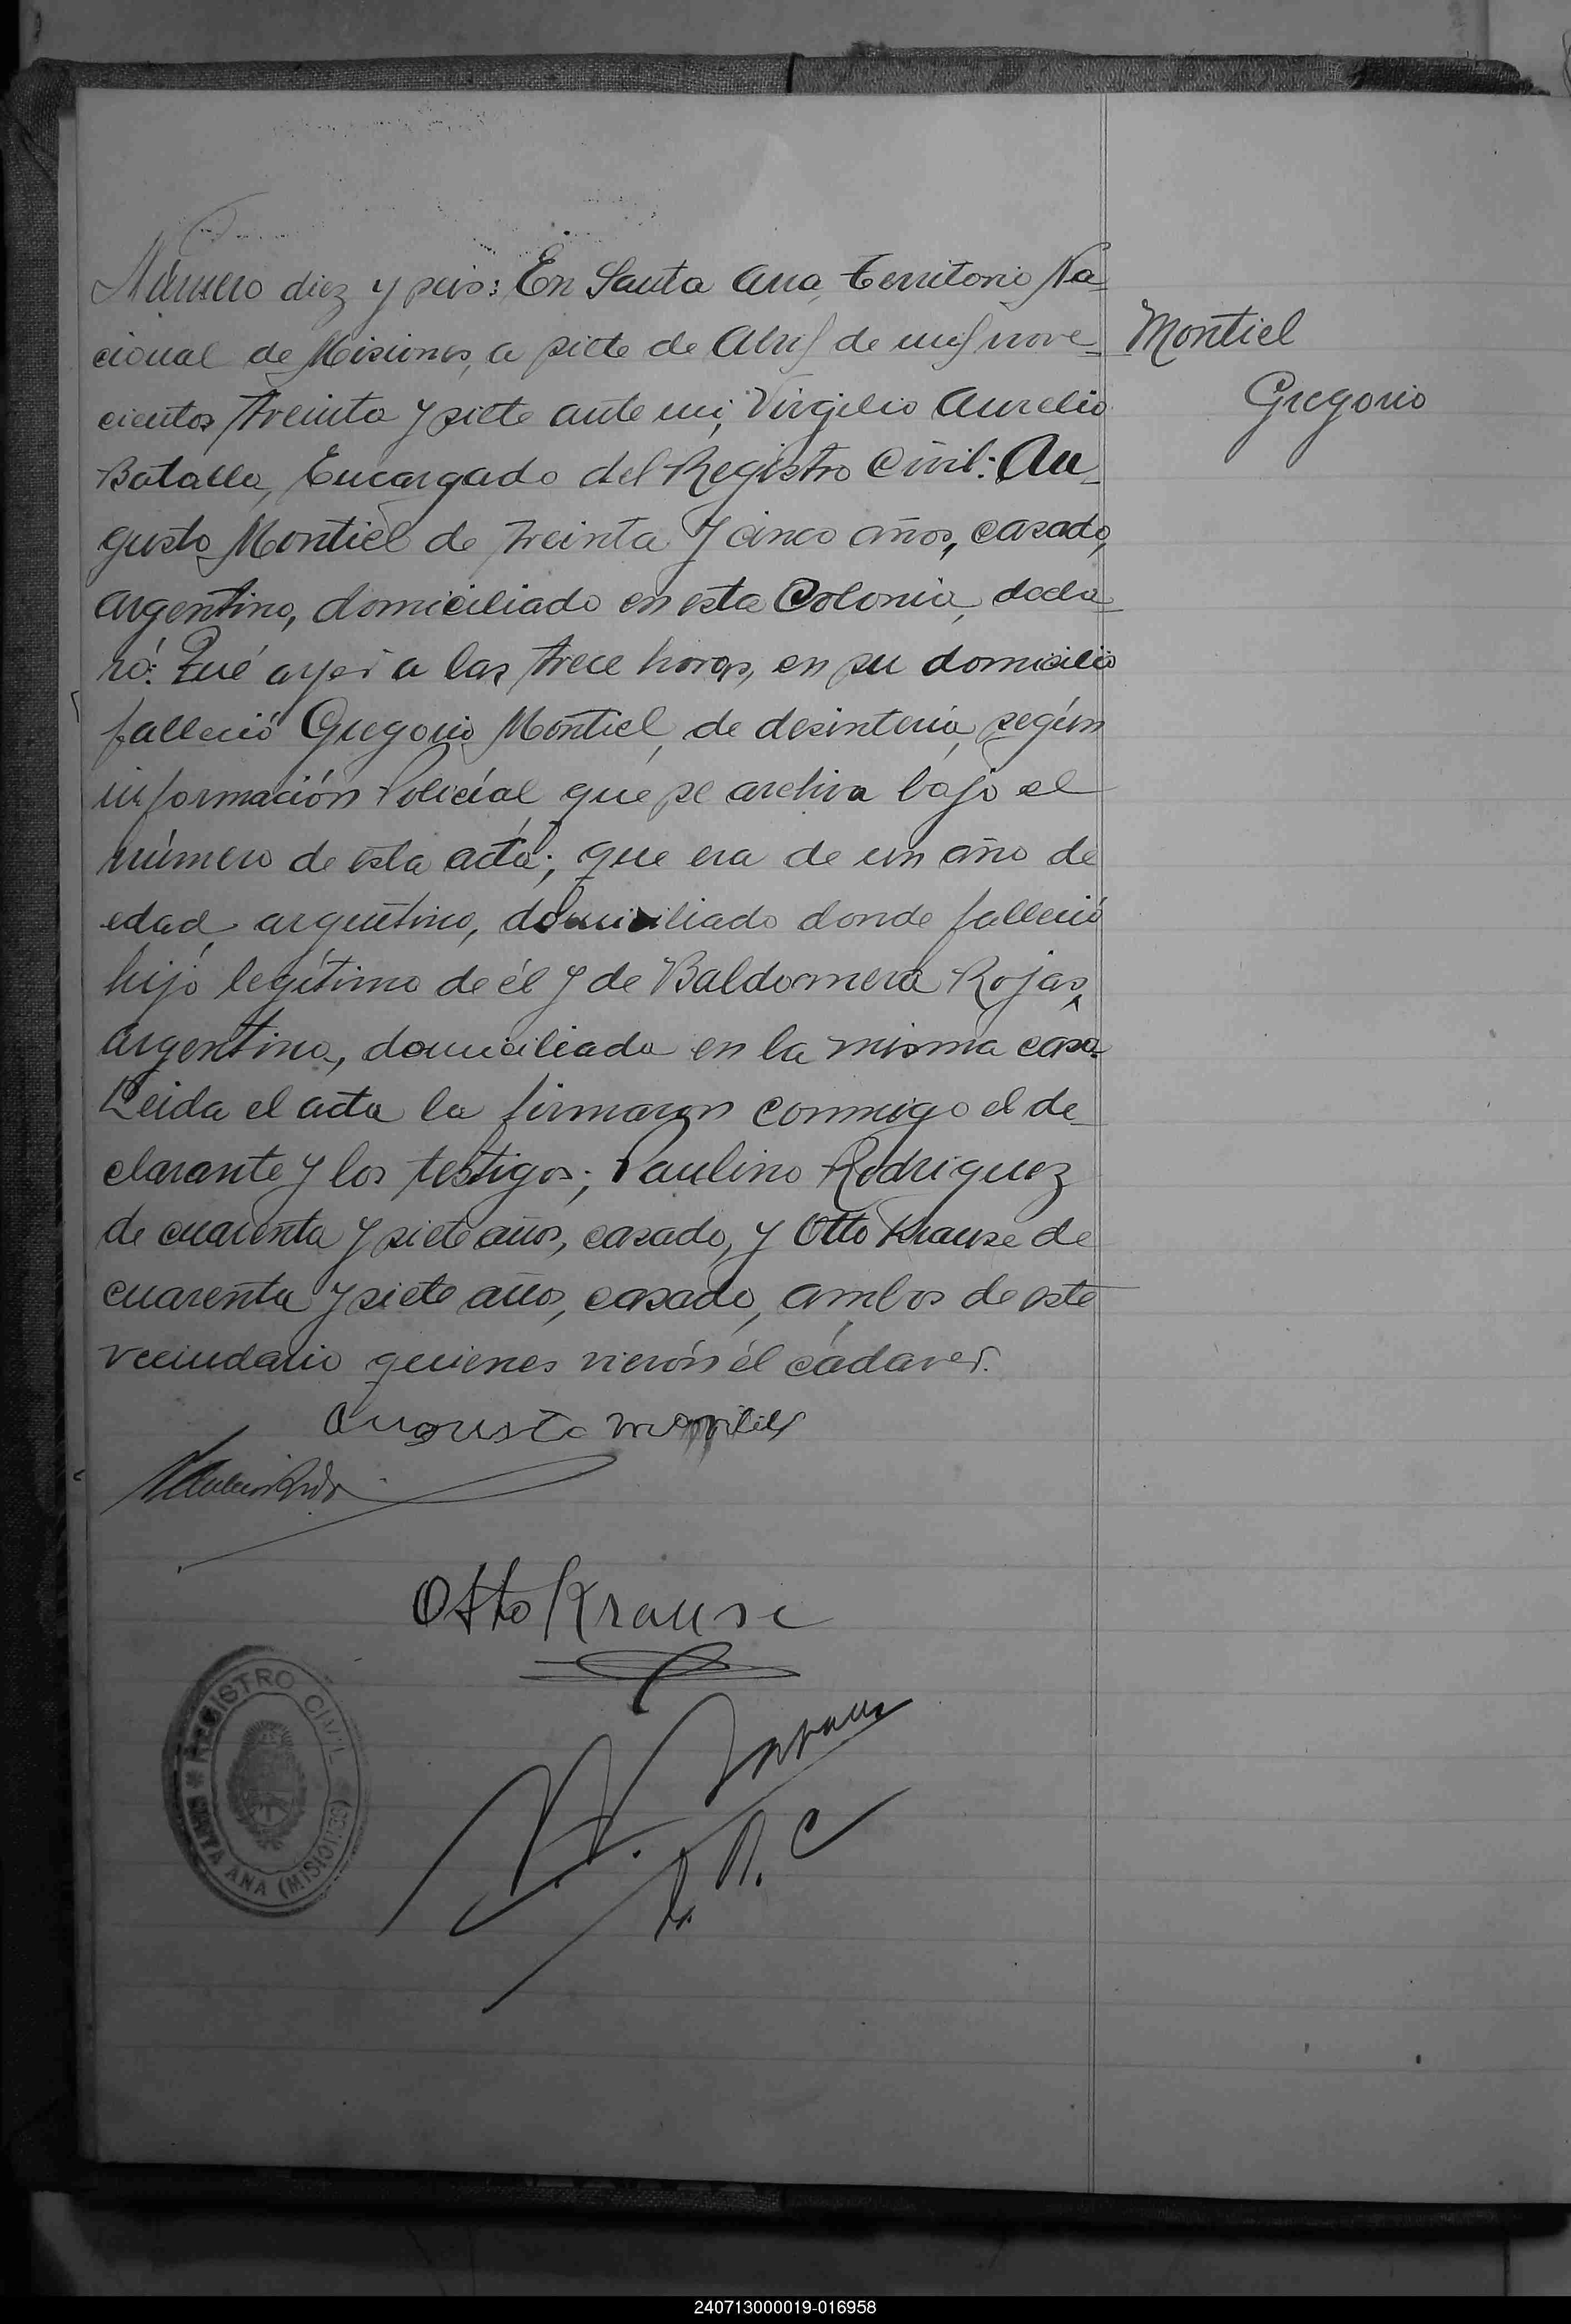 Número diez y seis: En Santa Ana, Territorio Na-
cional de Misiones, a siete de Abril de mil nove-
cientos treinta y siete ante mi, Virgilio Aurelio
Batalla, Encargado del Registro Civil: Au-
gusto Montiel de treinta y cinco años, casado,
argentino, domiciliado en esta Colonia, decla-
ró: Qué ayer a las trece horas, en su domicilio
falleció Gregorio Montiel, de desintería, según
información Policíal que se archiva bajo el
número de esta acta; que era de un año de
edad, argentino, domiciliado donde falleció
hijo legítimo de él y de Baldomera Rojas,
argentina, domiciliada en la misma casa.
Leida el acta la firmaron conmigo el de-
clarante y los testigos; Paulino Rodriguez
de cuarenta y siete años, casado, y Otto Krause de
cuarenta y siete años, casado, ambos de este
vecindario quienes vierón él cádaver.
Montiel
Gregorio
Augusto Montiel
Otto Krause
REGISTRO CIVIL
SANTA ANA (MISIONES)
240713000019-016958